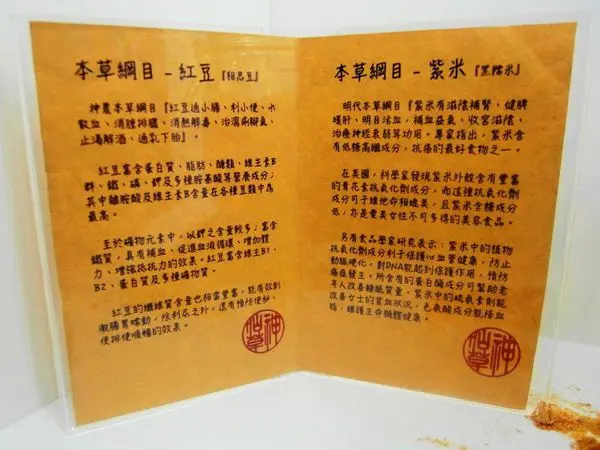 本草綱目 - 紅豆『相思豆』
神農本草綱目『紅豆通小腸、利小便、水
散血、消腫排膿、消熱解毒、治瀉痢腳氣、
止渴解酒、通乳下胎』。
紅豆富含蛋白質、脂肪、醣類、維生素B
群、鐵、磷、鉀及多種胺基酸等營養成分;
其中離胺酸及維生素B含量在各種豆類中為
最高。
至於礦物元素中,以鉀之含量較多;富含
鐵質,具有補血、促進血液循環、增加體
力、增強抵抗力的效果。紅豆富含維生B1、
B2、蛋白質及多種礦物質。
紅豆的纖維質含量也相當豐富,能有效刺
激腸胃蠕動,除利尿之外,還有預防便秘,
使排便順暢的效果。
本草綱目 - 紫米『黑糯米』
明代本草綱目『紫米有滋陰補腎、健脾
暖肝、明目活血、補血益氣、收宮滋陰、
治療神經衰弱等功用。專家指出,紫米含
有低糖高纖成分,抗癌的最好食物之一。
在美國,科學家發現紫米外殼含有豐富
的青花素抗氧化劑成分,而這種抗氧化劑
成分可于維他命相媲美,且紫米含糖成分
低,亦是愛美女性不可多得的美容食品。
另有食品學家研究表示:紫米中的植物
抗氧化劑成分利于保護心血管健康,防止
動脈硬化,對DNA能起到保護作用,預防
癌症發生。所含有的蛋白酶成分可幫助老
年人改善睡眠質量。紫米中的硫氨素則能
改善女士的貧血狀況,色氨酸成分能降血
脂,維護生命體健康。
仙草
神